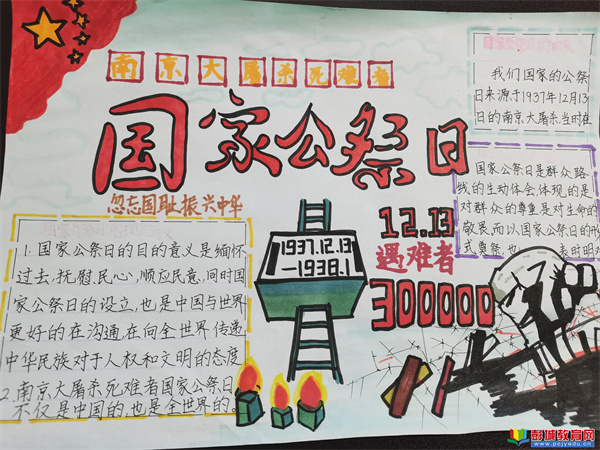 南京大屠杀死难者
国家公祭日
忽忘国耻振兴中华
我们国家的公祭
日来源于1937年12月13
日的南京大屠杀当时在
国家公祭日是群众路
线的生动体会,体现的是
对群众的尊重是对生命的
敬畏而以国家公祭日的形
式奠祭,也 表时明
1.国家公祭日的目的意义是缅怀
过去,抚慰民心,顺应民意,同时国
家公祭日的设立,也是中国与世界
更好的在沟通,在向全世界传递
中华民族对于人权和文明的态度
2.南京大屠杀死难者国家公祭日
不仅是中国的,也是全世界的。
1937.12.13
-1938.1
12.13
遇难者
300000
彭城教育网
www.pcjyedu.cn